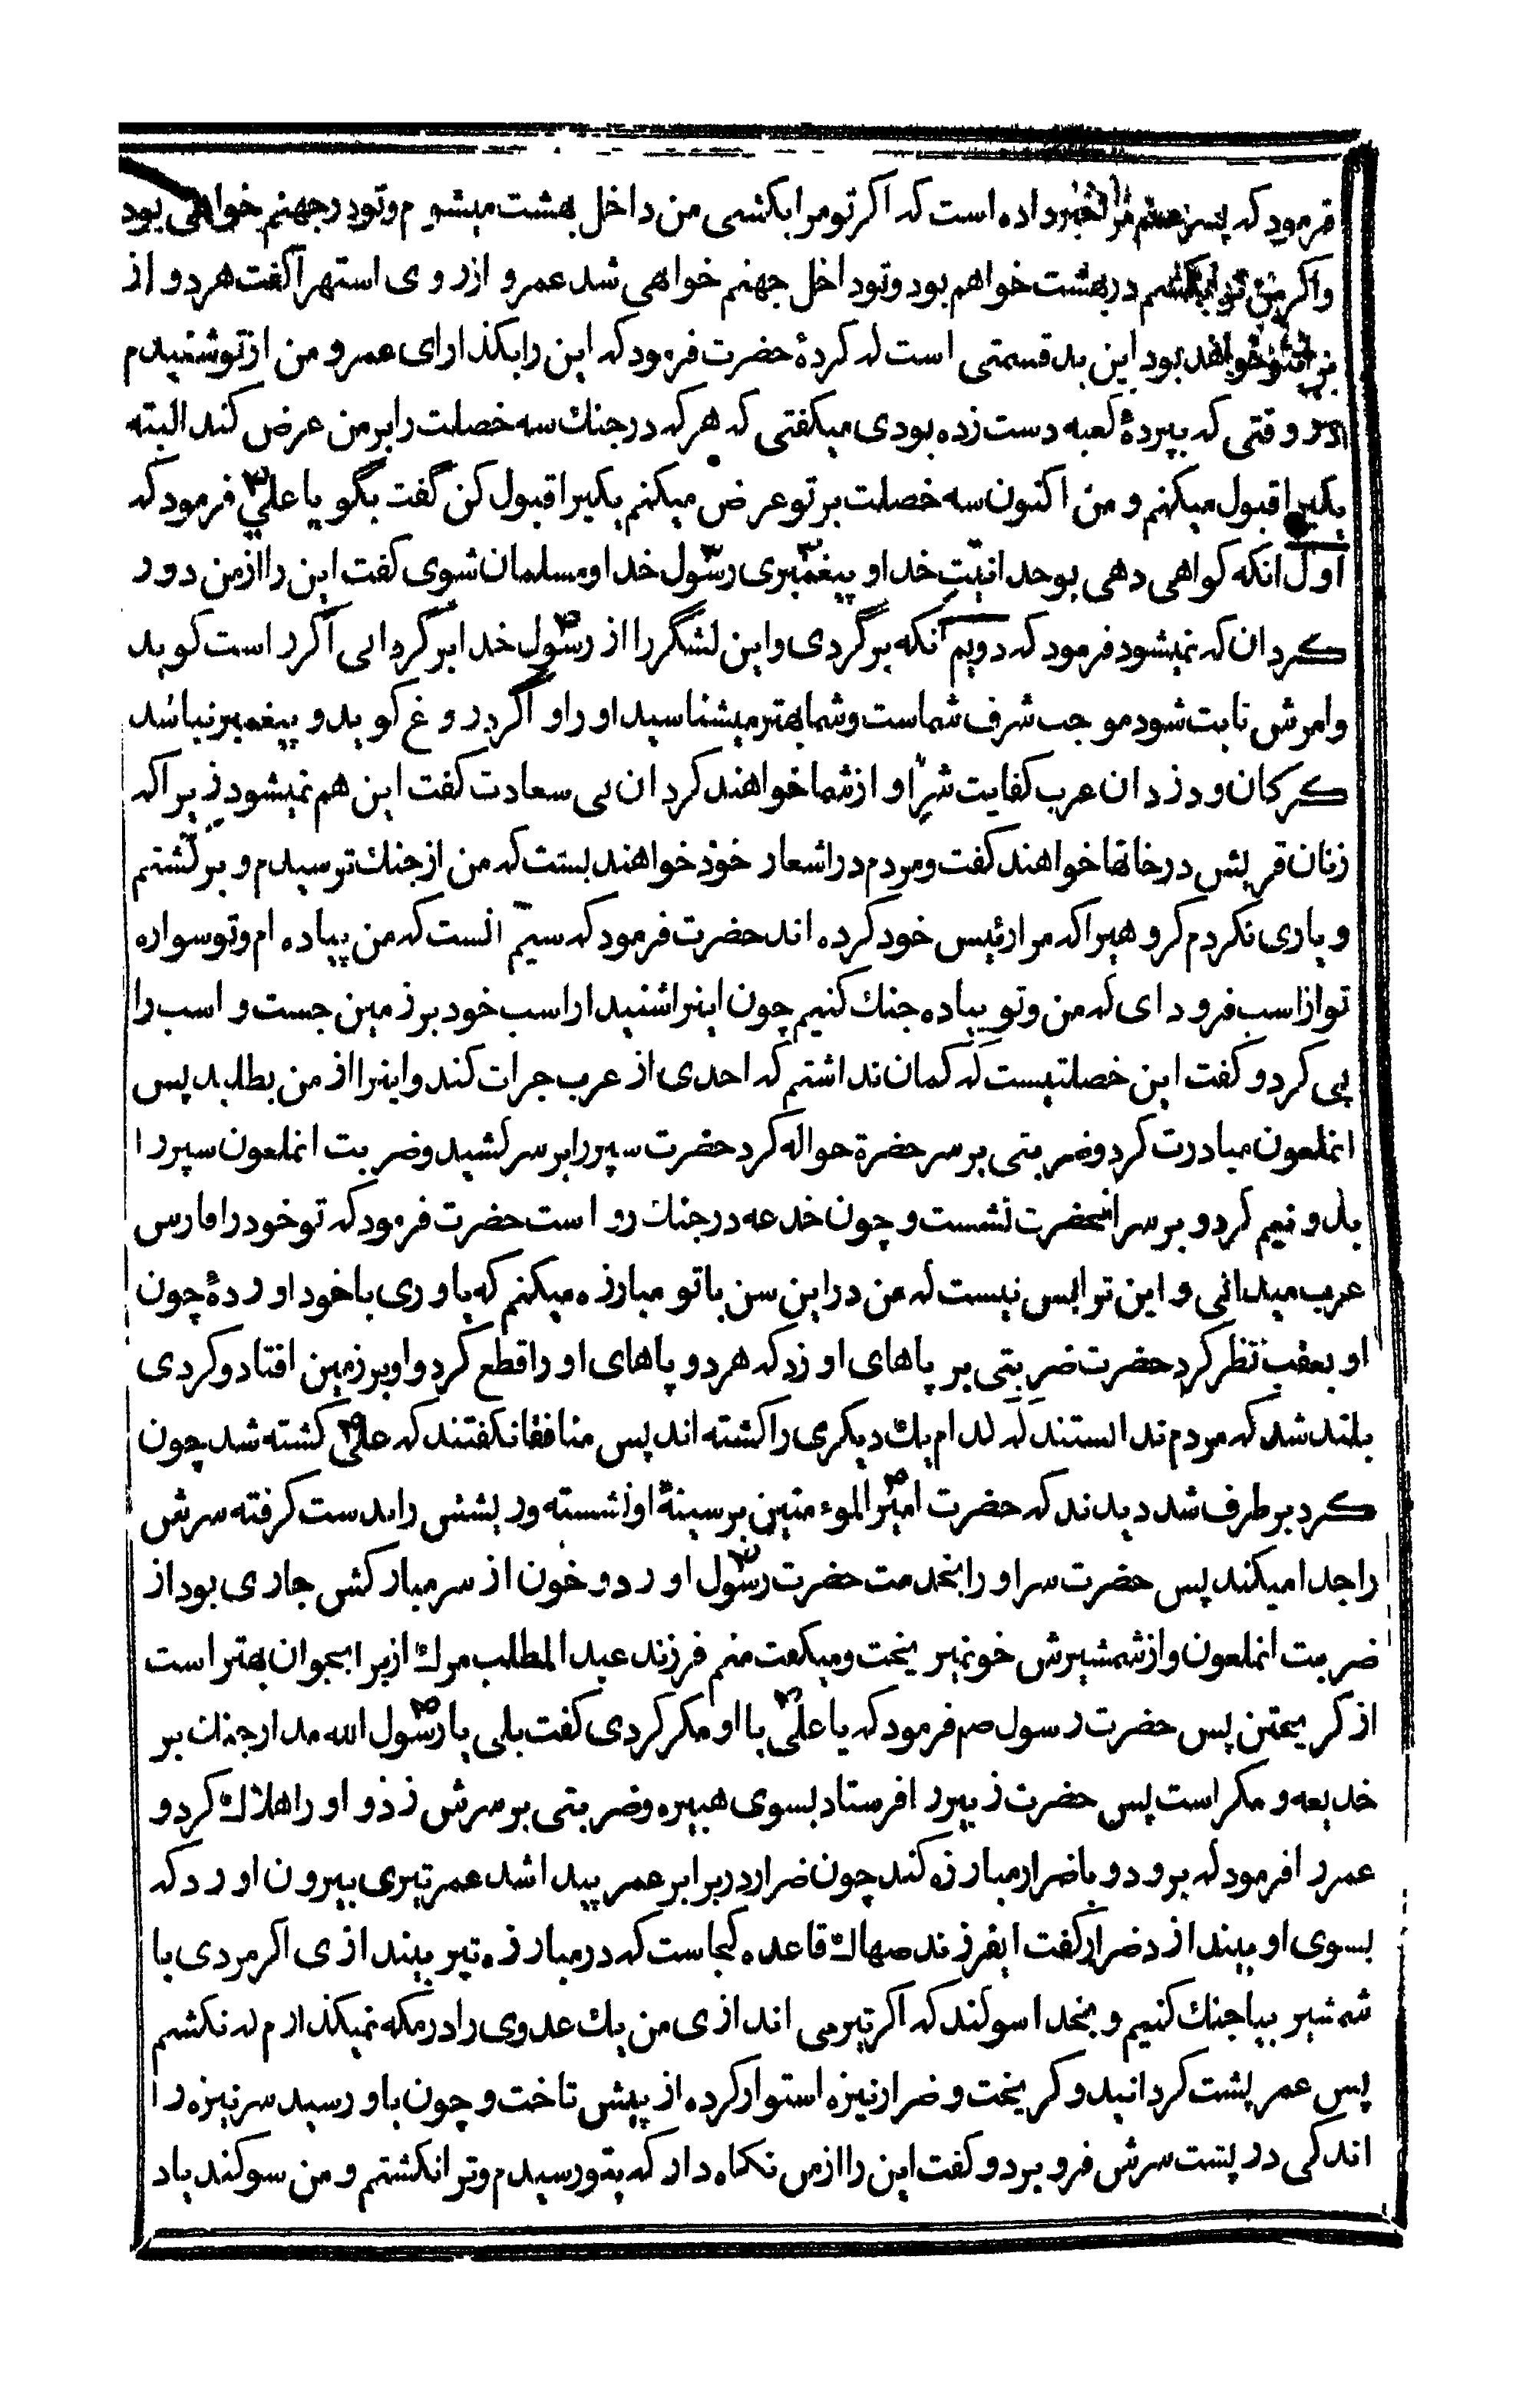 فرمود که پسر عمم مرا خبر داده است که اکر تو مرا بکشی من داخل بهشت میشوم و تو در جهنم خواهی بود
واکر من تو را بکشم در بهشت خواهم بود و تو داخل جهنم خواهی شد عمرو از روی استهزا کفت هر دو از
خواهد بود این بد قسمتی است که کردهٔ حضرت فرمود که این را بکذار ای عمرو من از تو شنیدم
در وقتی که بپردهٔ کعبه دست زده بودی میکفتی که هر که در جنك سه خصلت را بر من عرض کند البته
یکیرا قبول میکنم و من اکنون سه خصلت بر تو عرض میکنم یکیرا قبول کن گفت بگو یا علی فرمود که
اول انکه کواهی دهی بوحدانیت خدا و پیغمبری رسول خدا و مسلمان شوی کفت این را از من دور
کردان که نمیشود فرمود که دویم آنکه برگردی و این لشگر را از رسول خدا برگردانی اگر راست کوید
وامرش ثابت شود موجب شرف شماست و شما بهتر میشناسید او را و اگر دروغ کوید و پیغمبر نباشد
کرکان و دزدان عرب کفایت شر او از شما خواهند کرد ان بی سعادت کفت این هم نمیشود زیراکه
زنان قریش در خانها خواهند کفت و مردم در اشعار خود خواهند بست که من از جنك ترسیدم و برکشتم
و یاری نکردم کروهیرا که مرا رئیس خود کرده اند حضرت فرمود که سیّم انست که من پیاده ام و تو سواره
تو از اسب فرود ای که من و تو پیاده جنك کنیم چون اینرا شنید از اسب خود بر زمین جست و اسب را
پی کرد و کفت این خصلتیست که کمان نداشتم که احدی از عرب جرات کند و اینرا از من بطلبد پس
انملعون مبادرت کرد و ضربتی بر سر حضرة حواله کرد حضرت سپر را بر سر کشید و ضربت انملعون سپر را
بدو نیم کرد و بر سر انحضرت نشست و چون خدعه در جنك رواست حضرت فرمود که تو خود را فارس
عرب میدانی و این ترا بس نیست که من در این سن با تو مبارزه میکنم که یاوری با خود اوردهٔ چون
او بعقب نظر کرد حضرت ضربتی بر پاهای او زد که هر دو پاهای او را قطع کرد و او بر زمین افتاد و کردی
بلند شد که مردم ندانستند که کدام یك دیکری را کشته اند پس منافقان کفتند که علی کشته شد چون
کرد بر طرف شد دیدند که حضرت امیر الموء منین بر سینهٔ او نشسته و ریشش را بدست کرفته سرش
را جدا میکند پس حضرت سر او را بخدمت حضرت رسول اورد و خون از سر مبارکش جاری بود از
ضربت انملعون و از شمشیرش خون میریخت و میکفت منم فرزند عبد المطلب مرك از برای جوان بهتر است
از کریختن پس حضرت رسول صم فرمود که یا علی با او مکر کردی کفت بلی یا رسول الله مدار جنك بر
خدیعه و مکر است پس حضرت زبیر را فرستاد بسوی هبیره و ضربتی بر سرش زد و او را هلاك کرد و
عمر را فرمود که برود و با ضرار مبارزه کند چون ضرار در برابر عمر پیدا شد عمر تیری بیرون اورد که
بسوی او بیندازد ضرار کفت ایفرزند صهاك قاعده کجاست که در مبارزه تیر بیندازی اکر مردی با
شمشیر بیا جنك کنیم و بخدا سوکند که اکر تیر می اندازی من یك عدوی را در مکه نمیکذارم که نکشم
پس عمر پشت کردانید و کریخت و ضرار نیزه استوار کرده از پیش تاخت و چون باو رسید سر نیزه را
اندکی در پشت سرش فرو برد و کفت این را از من نکاه دار که بتو رسیدم و ترا نکشتم و من سوکند یاد